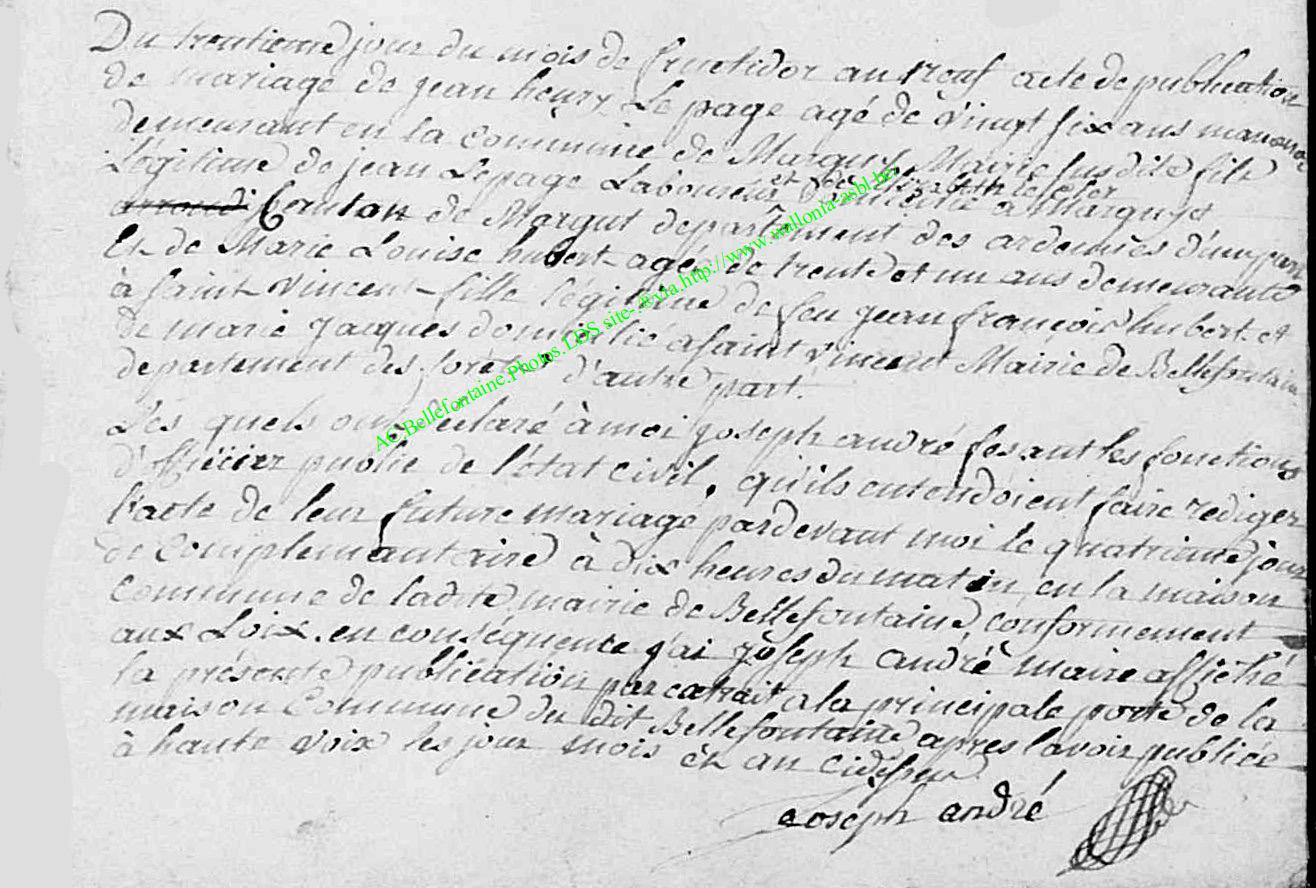 Du trentieme jour du mois de fructidor an neuf acte de publication
de mariage de jean henry Le page agé de vingt six ans manouvr
demeurant en la commune de Margut Mairie susdite fils
Légitime de jean Lepage Laboureur et de Elisabeth
Canton de Margut département des ardennes d'une part
Et de Marie Louise hubert agée de trente et un ans demeurante
à saint vincent fille légitime de feu jean françois hubert et
de marie jacques domicilié a saint vincent Mairie de Bellefontaine
departement des forêts d'autre part.
Les quels ont déclaré à moi joseph andré fesant les fonctions
d'officier public de l'état civil, qu'ils entendoient faire rediger
l'acte de leur future mariage pardevant moi le quatrieme jour
de Complementaire à dix heures du matin, en la maison
Commune de ladite mairie de Bellefontaine, conformement
aux Loix. en conséquence j'ai joseph andré maire affiché
la présente publication par extrait a la principale porte de la
maison Commune du dit Bellefontaine apres lavoir publiée
à haute voix les jour mois et an cidessus
joseph andré
AC.Bellefontaine.Photos.LDS.site-®via.http://www.wallonia-asbl.be/